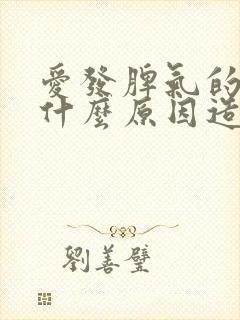 愛發脾氣的
什麼原因造
劉善璧